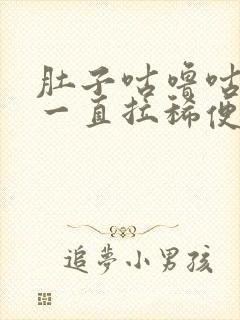 肚子咕噜咕
一直拉稀便
追梦小男孩